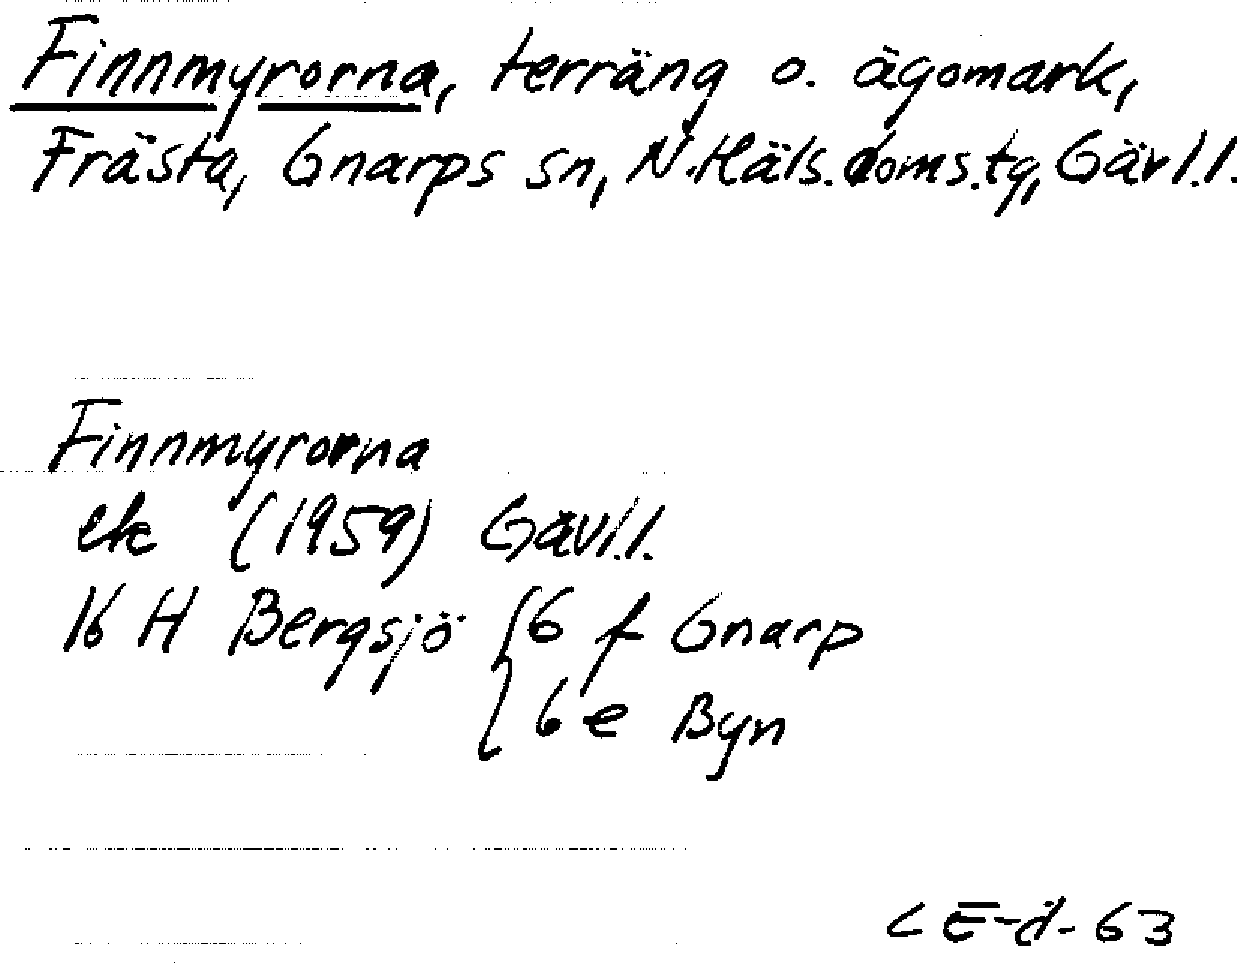 Finnmyrorna, terräng o. ägomark,
Frästa, Gnarps sn, N.Häls.doms.tg, Gävl.l.
Finnmyrorna
ek (1959) Gävl.l.
16 H Bergsjö { 6 f Gnarp
6 e Byn
63